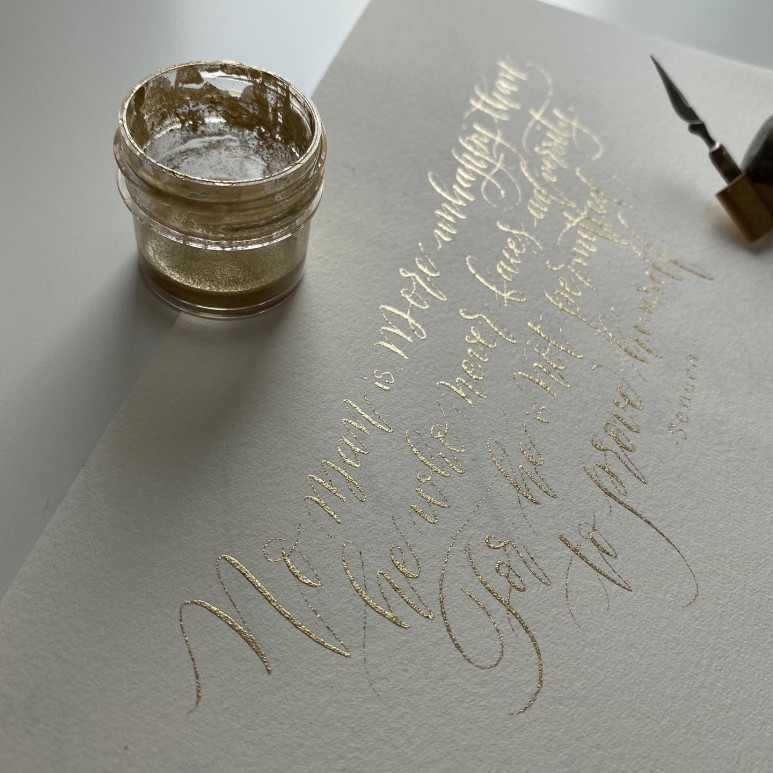 No man is more unhappy than
he who never faces adversity.
For he is not permitted
to prove himself
-Seneca-